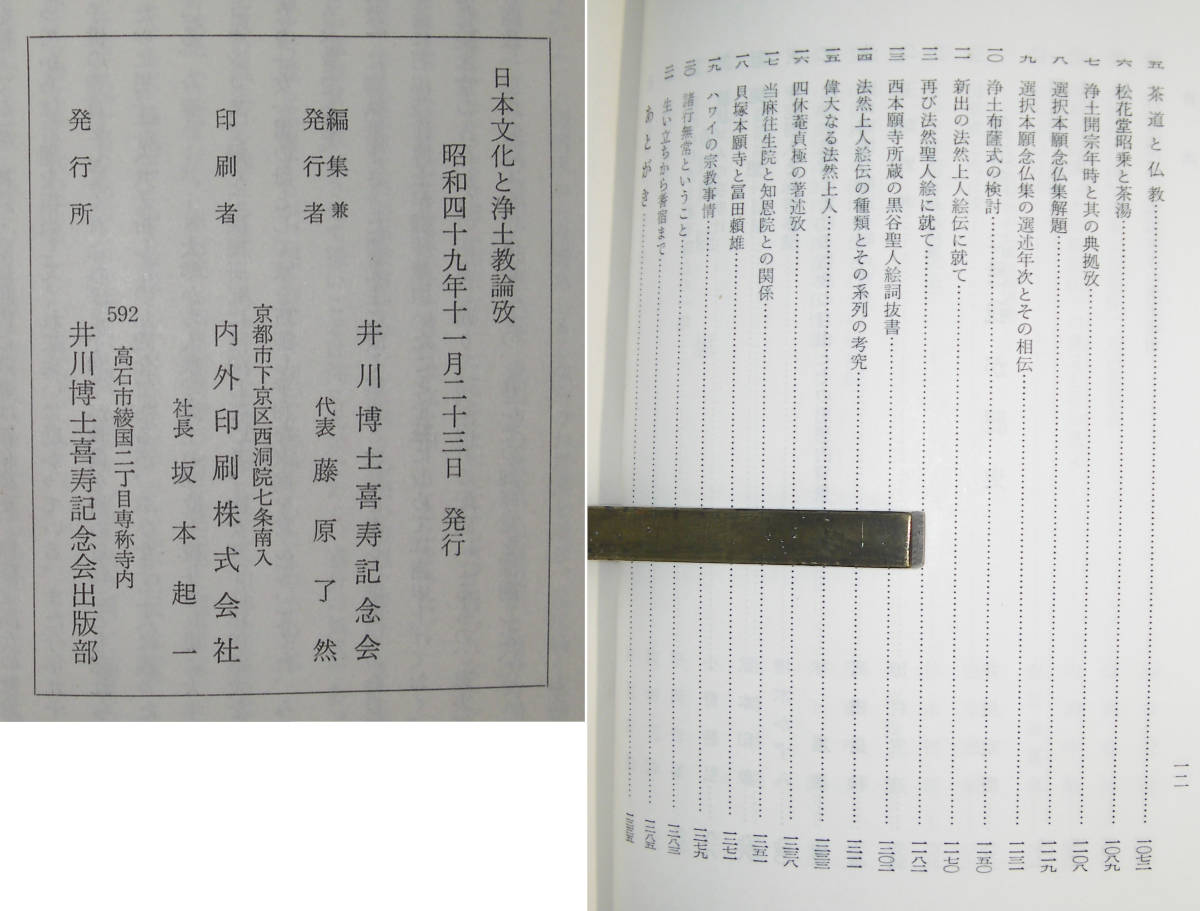 日本文化と浄土教論攷
昭和四十九年十一月二十三日 発行
編集兼
発行者
井川博士喜寿記念会
代表 藤原了然
京都市下京区西洞院七条南入
印刷者
内外印刷株式会社
社長 坂本起一
592 高石市綾園二丁目専称寺内
発行所
井川博士喜寿記念会出版部
一二
五 茶道と仏教……一〇七二
六 松花堂昭乗と茶湯……一〇八九
七 浄土開宗年時と其の典拠攷……一一〇八
八 選択本願念仏集解題……一一一九
九 選択本願念仏集の選述年次とその相伝……一一三一
一〇 浄土布薩式の検討……一一五〇
一一 新出の法然上人絵伝に就て……一一七〇
一二 再び法然聖人絵に就て……一一八二
一三 西本願寺所蔵の黒谷聖人絵詞抜書……一二〇二
一四 法然上人絵伝の種類とその系列の考究……一二一一
一五 偉大なる法然上人……
一六 四休菴貞極の著述攷……一三三八
一七 当麻往生院と知恩院との関係……一三五一
一八 貝塚本願寺と冨田頼雄……一三七一
一九 ハワイの宗教事情……一三七九
二〇 諸行無常ということ……一三八三
二一 生い立ちから耆宿まで……一三八五
あとがき……